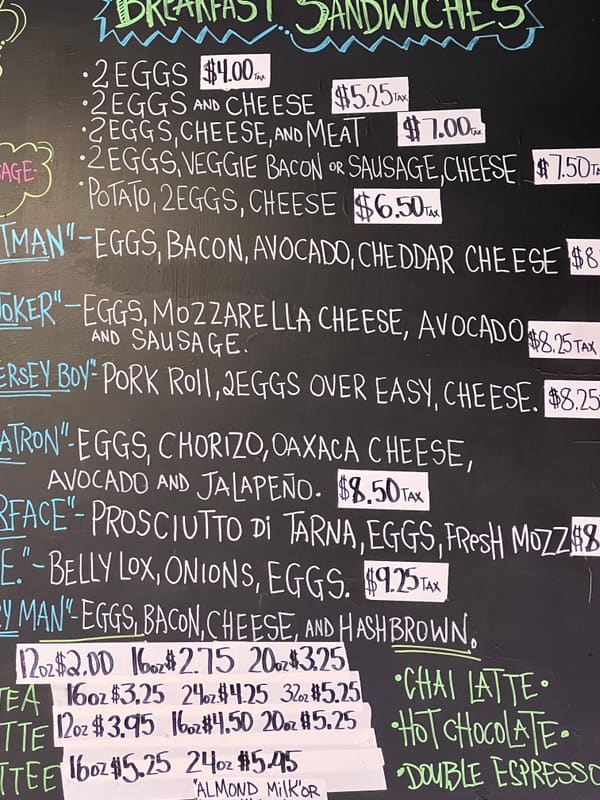 BREAKFAST SANDWICHES
•2 EGGS $4.00 TAX
•2 EGGS AND CHEESE $5.25 TAX
•2 EGGS, CHEESE, AND MEAT $7.00 TAX
•2 EGGS, VEGGIE BACON OR SAUSAGE, CHEESE $7.50 TA
AGE-
•POTATO, 2EGGS, CHEESE $6.50 TAX
TMAN"-EGGS, BACON, AVOCADO, CHEDDAR CHEESE $8
OKER"-EGGS, MOZZARELLA CHEESE, AVOCADO
AND SAUSAGE. $8.25 TAX
ERSEY BOY"-PORK ROll, 2EGGS OVER EASY, CHEESE. $8.25
ATRON"-EGGS, CHORIZO, OAXACA CHEESE,
AVOCADO AND JALAPEÑO. $8.50 TAX
RFACE"-PROSCIUTTO Di TARNA, EGGS, FRESH MOZZ $8
E."-BELLY LOX, ONIONS, EGGS. $9.25 TAX
Y MAN"-EGGS, BACON, CHEESE, AND HASHBROWN.
12oz $2.00 16oz $2.75 20oz $3.25
TEA 16oz $3.25 24oz $4.25 32oz $5.25
TTE 12oz $3.95 16oz $4.50 20oz $5.25
TTEE 16oz $5.25 24oz $5.45
"ALMOND Milk" OR
•CHAI LATTE•
•HOT CHOCOLATE•
•DOUBLE ESPRESSO